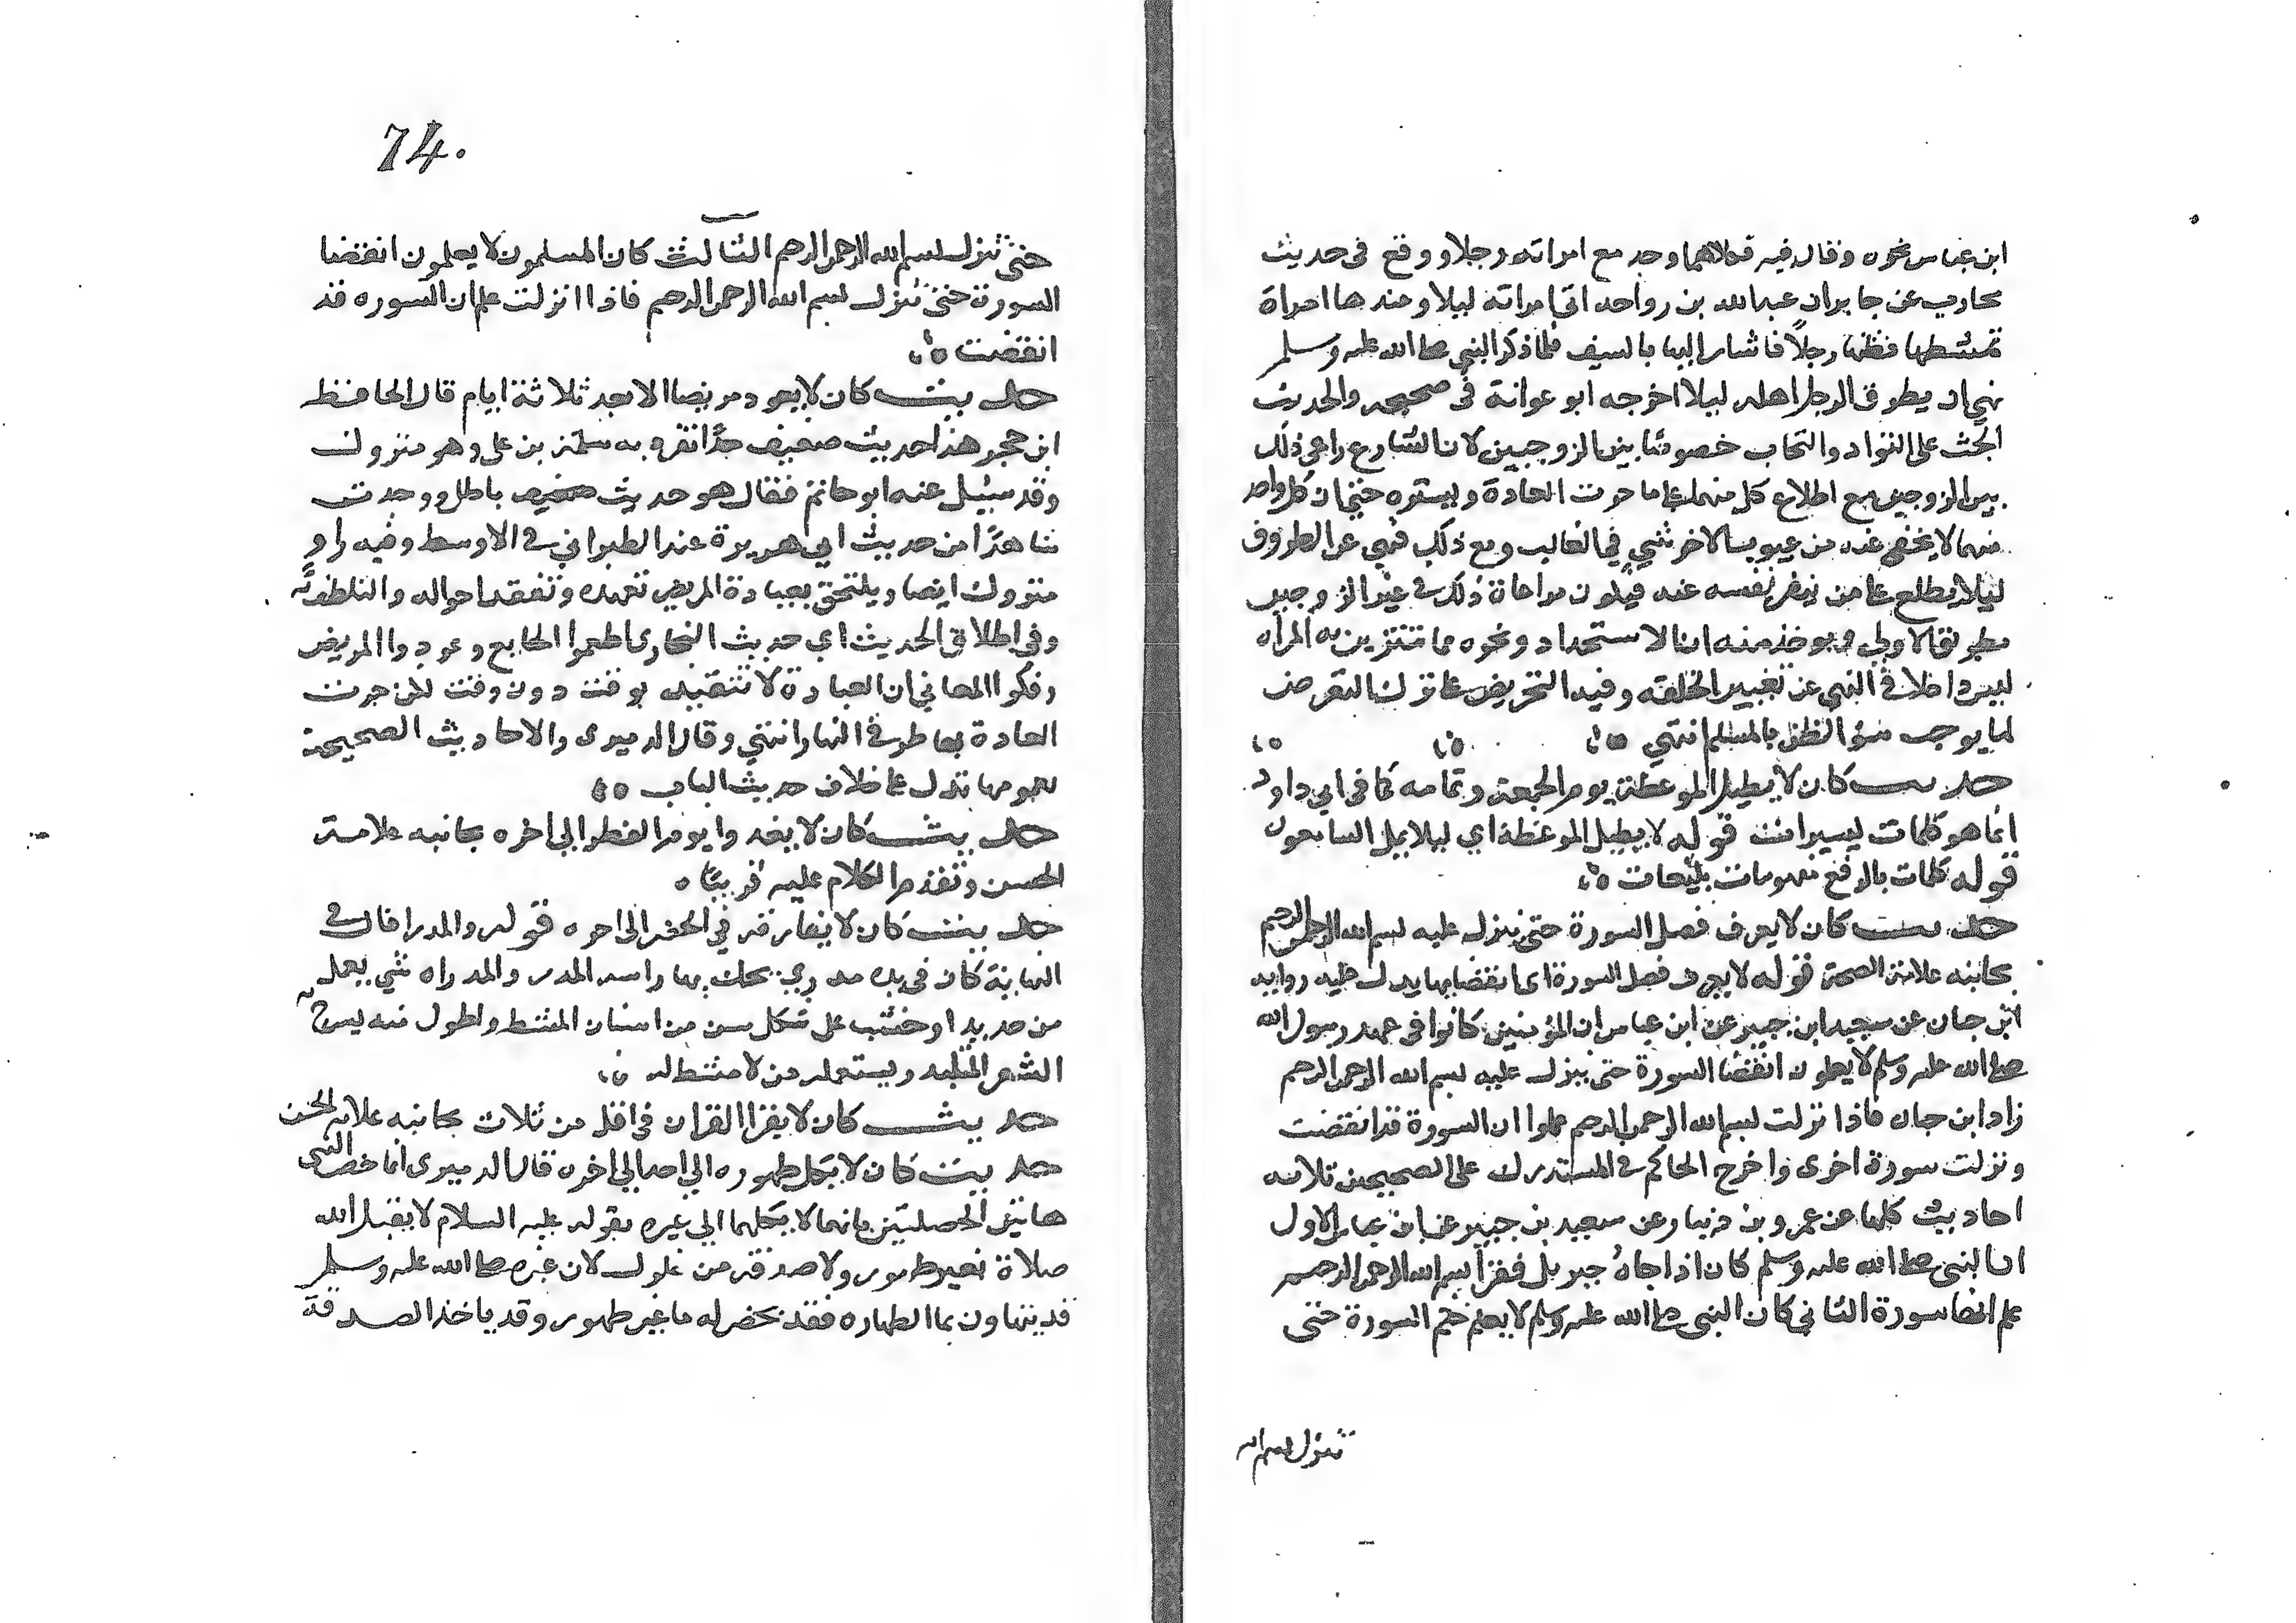 ابن عباس نحوه وقال فيه فكلاهما وجد مع امراته رجلا ووقع فى حديث
محارب عن جابر ان عبد الله بن رواحة اتى امراته ليلا وعندها امراة
تمشطها فظنها رجلاً فاشار اليها بالسيف فلما ذكر للنبى صلى الله عليه وسلم
نهى ان يطرق الرجل اهله ليلا اخرجه ابو عوانة فى صحيحه والحديث
الحث على التواد والتحاب خصوصا بين الزوجين لان الشارع راعى ذلك
بين الزوجين مع اطلاع كل منهما على ما جرت العادة وبستره حتى ان كل واحد
منهما لا يخفى عنه من عيوب الاخر شي في الغالب ومع ذلك فنهي عن الطروق
ليلا يطلع على من ينفر نفسه عنه فيكون مراعاة ذلك في غير الزوجين
بطريق الاولي ويوخذ منه ان الاستحداد ونحوه مما تتزين به المراه
ليس داخلا في النهي عن تغيير الخلقة وفيه التحريض على ترك التعرض
لما يوجب سؤ الظن بالمسلم انتهي
حديث كان لا يطيل الموعظة يوم الجمعة وتمامه كما في ابي داود
انما هو كلمات يسيرات قوله لا يطيل الموعظة اي ليلا يمل السامعون
قوله كلمات بالرفع
حديث كان لا يعرف فصل السورة حتى ينزل عليه بسم الله الرحمن الرحيم
بجانبه علامة الصحة قوله لا يعرف فصل السورة اى انقضايها يدل عليه رواية
ابن حبان عن سعيد ابن جبير عن ابن عباس ان المؤمنين كانوا فى عهد رسول الله
صلى الله عليه وسلم لا يعلمون انقضا السورة حتى ينزل عليه بسم الله الرحمن الرحيم
زاد ابن حبان فاذا نزلت بسم الله الرحمن الرحيم علموا ان السورة قد انقضت
ونزلت سورة اخرى واخرج الحاكم في المستدرك على الصحيحين ثلاثه
احاديث كلها عن عمرو بن دينار عن سعيد بن جبير عن ابن عباس الاول
ان النبى صلى الله عليه وسلم كان اذا جاه جبريل فقرا بسم الله الرحمن الرحيم
علم انها سورة الثاني كان النبى صلى الله عليه وسلم لا يعلم ختم السورة حتى
تنزل بسم الله
74.
حتى تنزل بسم الله الرحمن الرحيم الثالث كان المسلمون لا يعلمون انقضا
السورة حتى تنزل بسم الله الرحمن الرحيم فاذا انزلت علم ان السوره قد
انقضت
حديث كان لا يعود مريضا الا بعد ثلاثة ايام قال الحافظ
ابن حجر هذا حديث ضعيف جدًا تفرد به سلمة بن على وهو متروك
وقد سيل عنه ابو حاتم فقال هو حديث باطل ووجدت
شاهدًا من حديث ابي هريرة عند الطبراني في الاوسط وفيه راوٍ
متروك ايضا ويلتحق بعيادة المريض تعهده وتفقد احواله والتلطف به
وفى اطلاق الحديث اي حديث البخارى اطعموا الجايع وعودوا المريض
وفكوا العاني ان العيادة لا تتقيد بوقت دون وقت لكن جرت
العادة بها طرفي النهار انتهي وقال الدميرى والاحاديث الصحيحة
بعمومها تدل على خلاف حديث الباب
حديث كان لا يغدوا يوم الفطر الي اخره بجانبه علامة
الحسن وتقدم الكلام عليه قريبًا
حديث كان لا يفارقه في الحضر الى اخره قوله والمدرا قال في
النهاية كان فى يده مدري يحك بها راسه المدر والمدراه شي يعمل
من حديد او خشب على شكل سن من اسنان المشط واطول منه يسرح به
الشعر المتلبد ويستعمله من لا مشط له
حديث كان لا يقرا القران فى اقل من ثلاث بجانبه علامة الحسن
حديث كان لا يكل طهوره الي احد الي اخره قال الدميرى انما خص النبى
هاتين الخصلتين بانهما لا يكلهما الي غيره بقوله عليه السلام لا يقبل الله
صلاة بغير طهور ولا صدقة من غلول لان غيره صلى الله عليه وسلم
قد يتهاون بما الطهاره فقد يحضر له ما غير طهور وقد ياخذ الصدقة